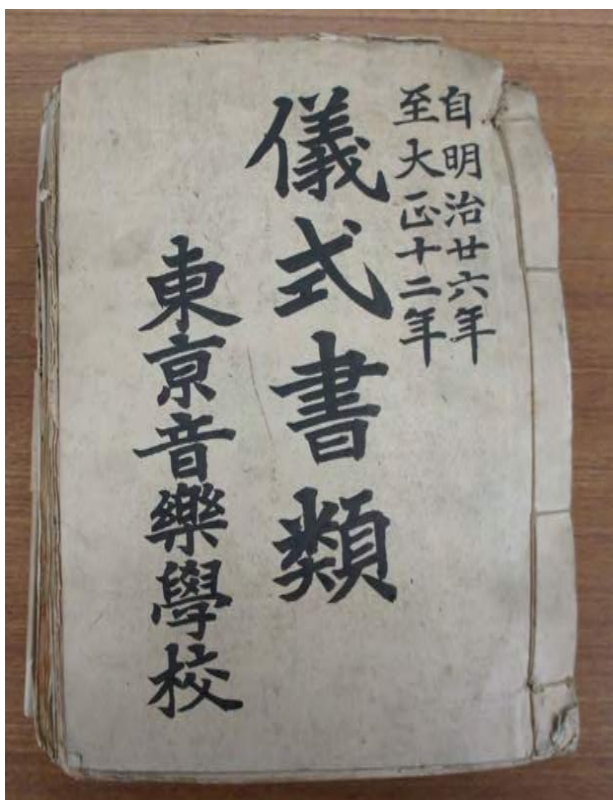 自明治廿六年
至大正十二年
儀式書類
東亰音樂學校